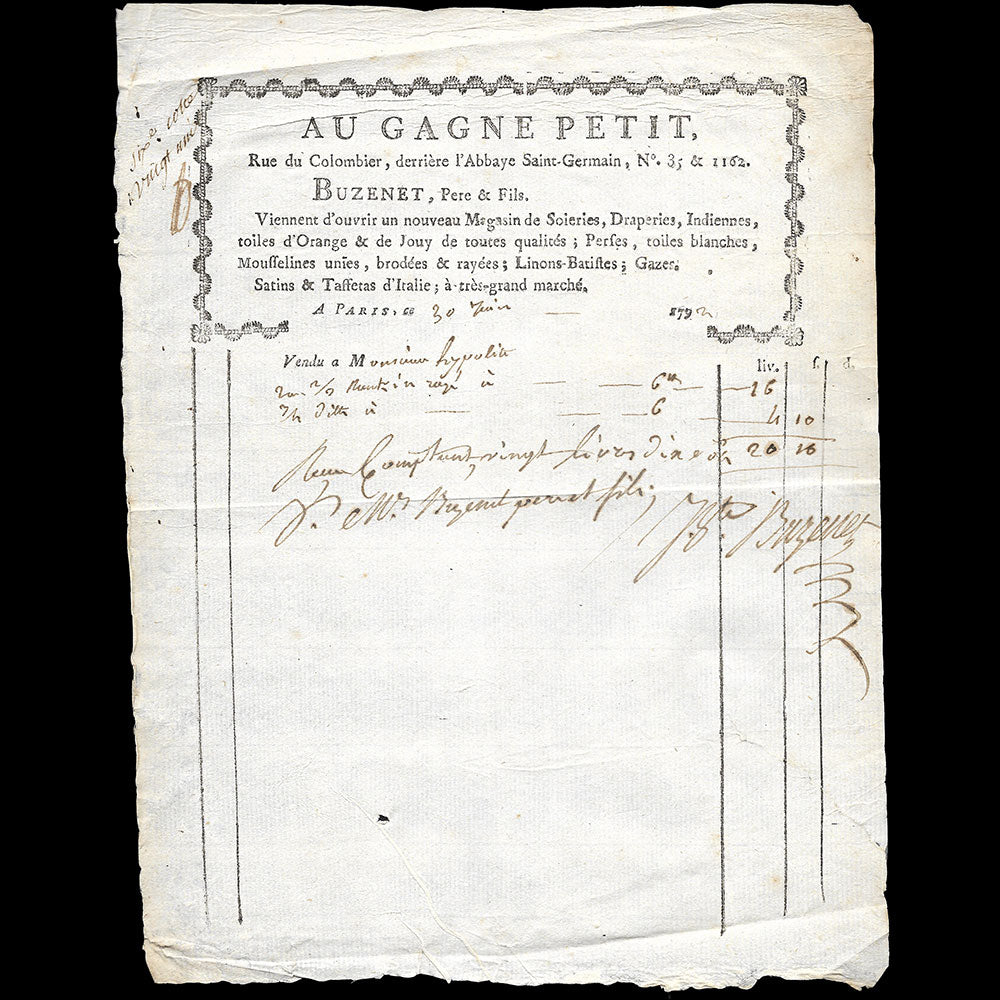 AU GAGNE PETIT,
Rue du Colombier, derrière l'Abbaye Saint-Germain, N°. 35 & 1162.
BUZENET, Pere & Fils.
Viennent d'ouvrir un nouveau Magasin de Soieries, Draperies, Indiennes,
toiles d'Orange & de Jouy de toutes qualités ; Perses, toiles blanches,
Mousselines unies, brodées & rayées ; Linons-Batistes ; Gazes.
Satins & Taffetas d'Italie ; à très-grand marché.
A PARIS, ce 30 Juin 1792
Vendu a Monsieur hyppolite
liv. s. d.
2 2/3 rayé à 6 16
3/4 ditto à 6 4 10
20 10
Comptant vingt livres dix
Buzenet pere et fils
Buzenet
vingt une